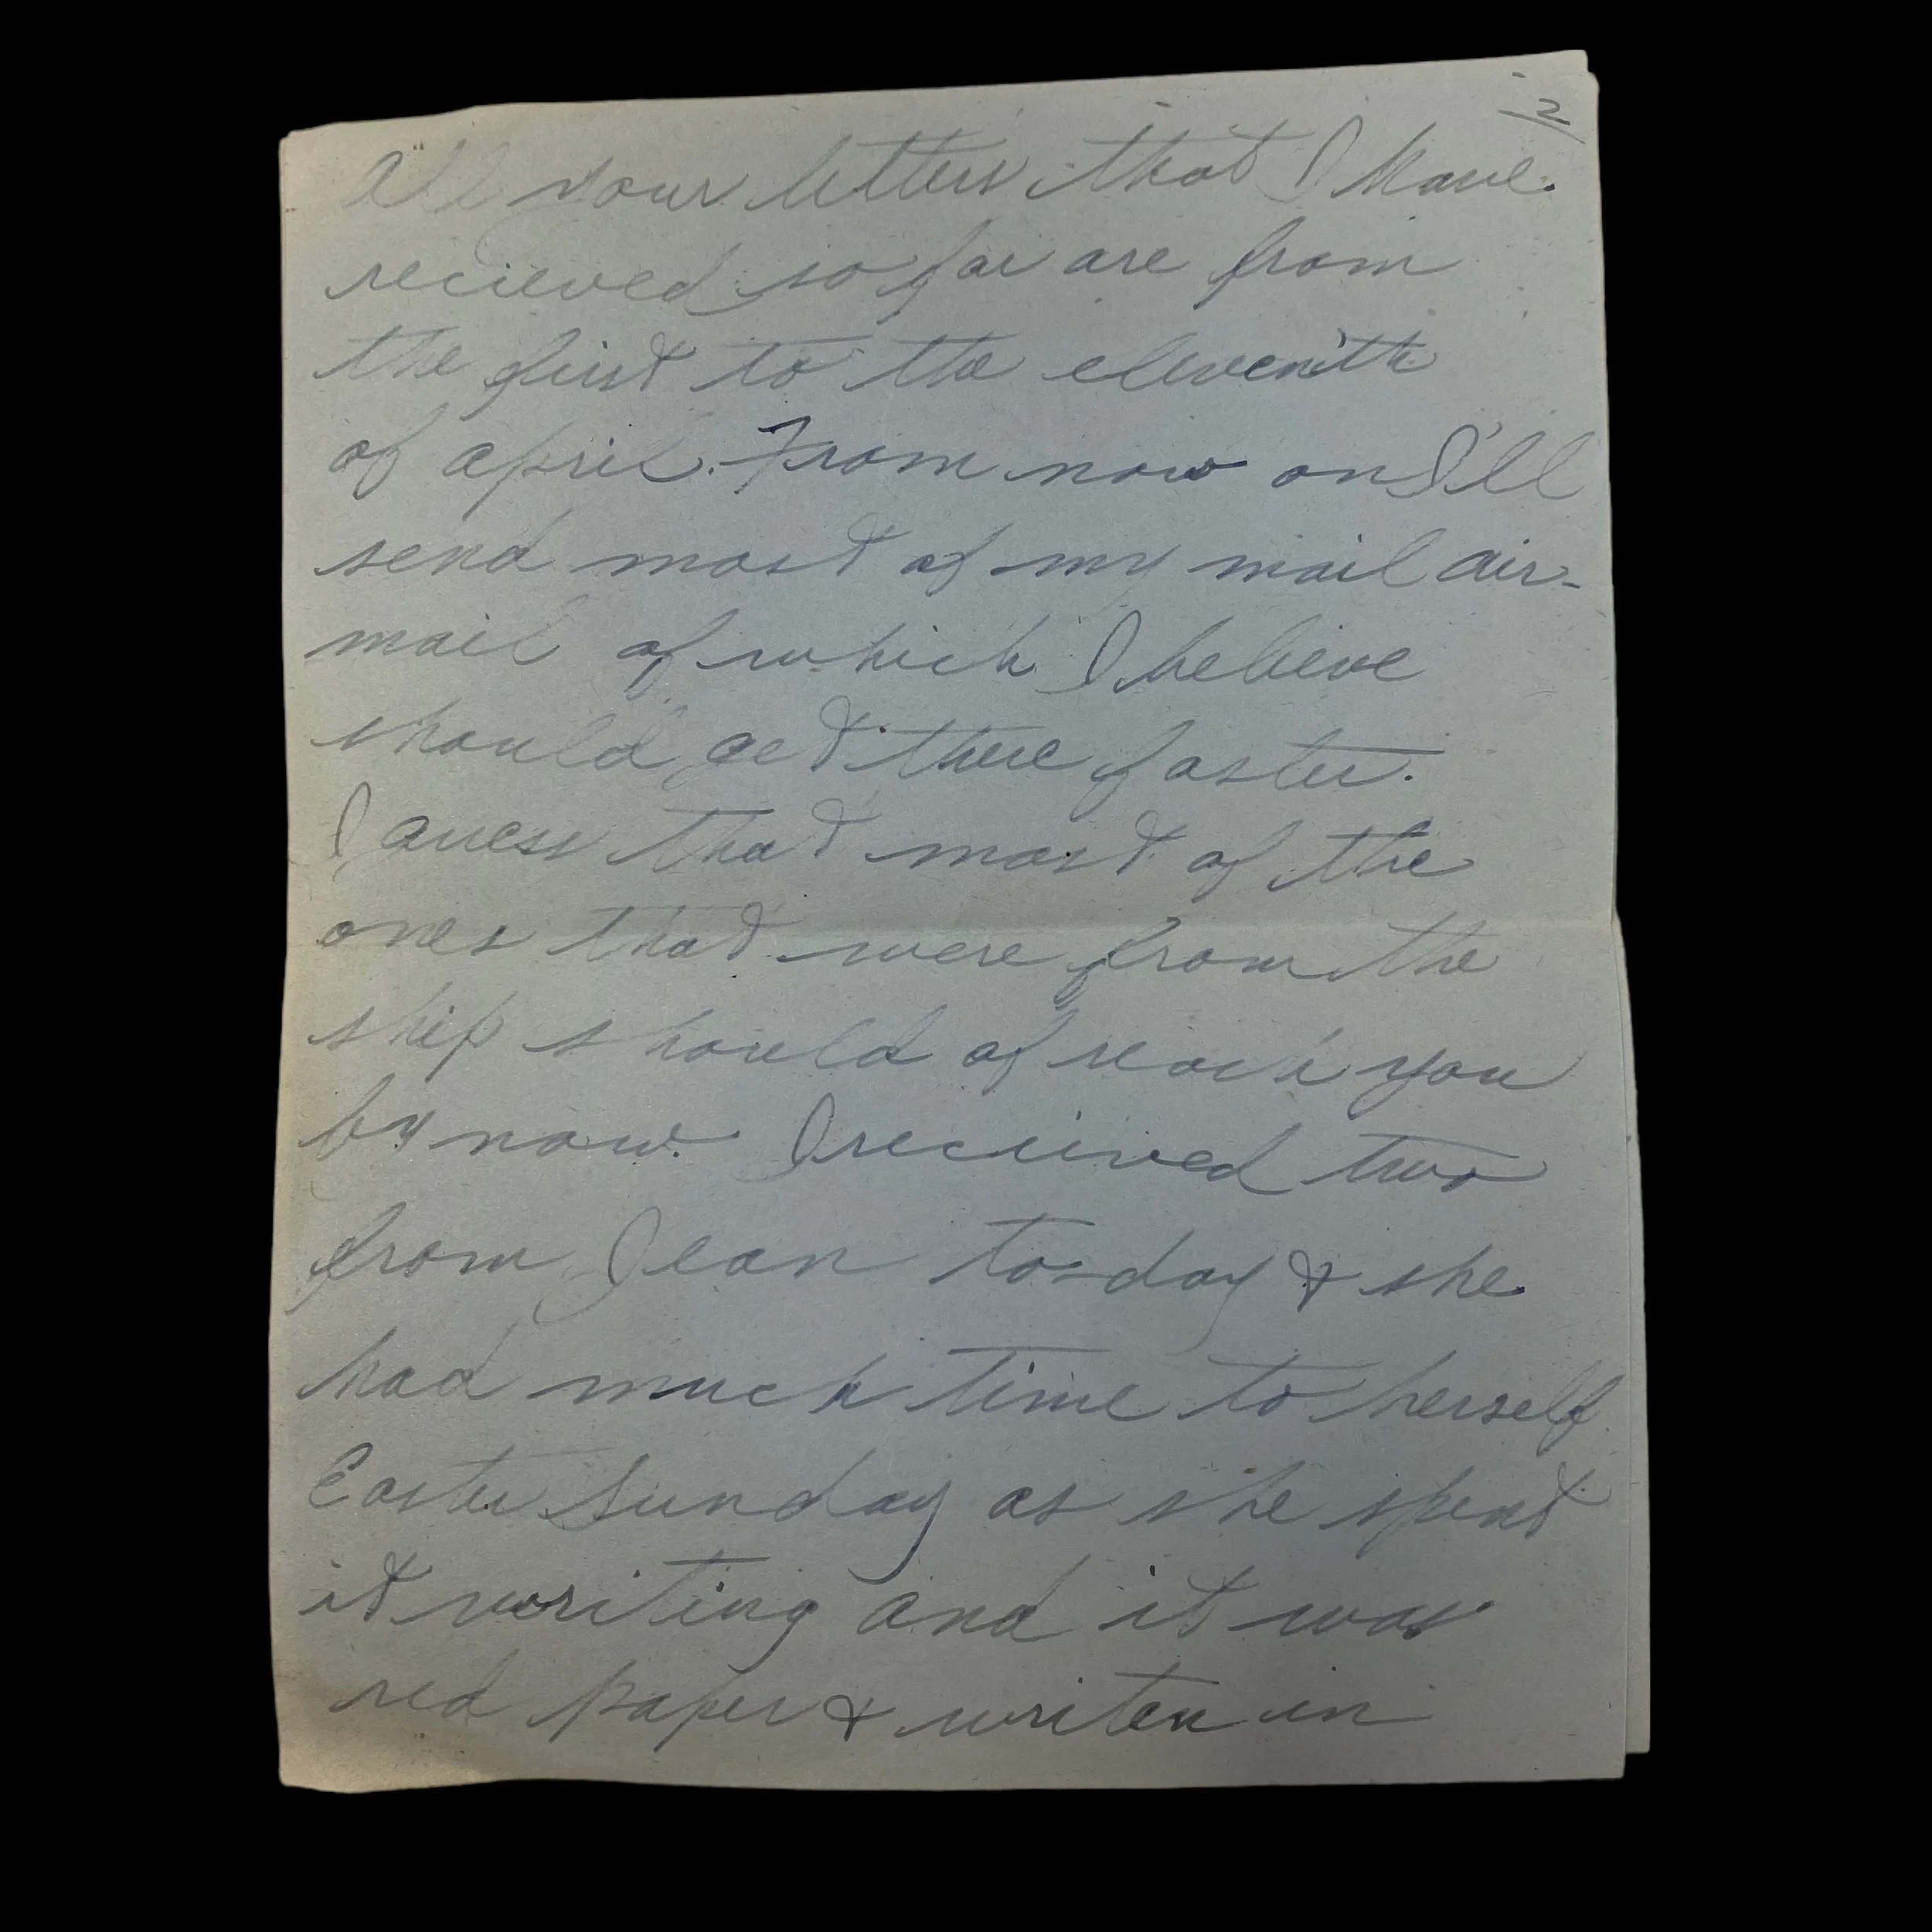 2
All your letters that I have
recieved so far are from
the first to the elevenith
of april. From now on I'll
send most of my mail air-
mail of which I believe
should get there faster.
I guess that most of the
ones that were from the
ship should of reach you
by now. I recieved two
from Jean to-day & she
had much time to herself
Easter Sunday as she spent
it writing and it was
red paper & writen in